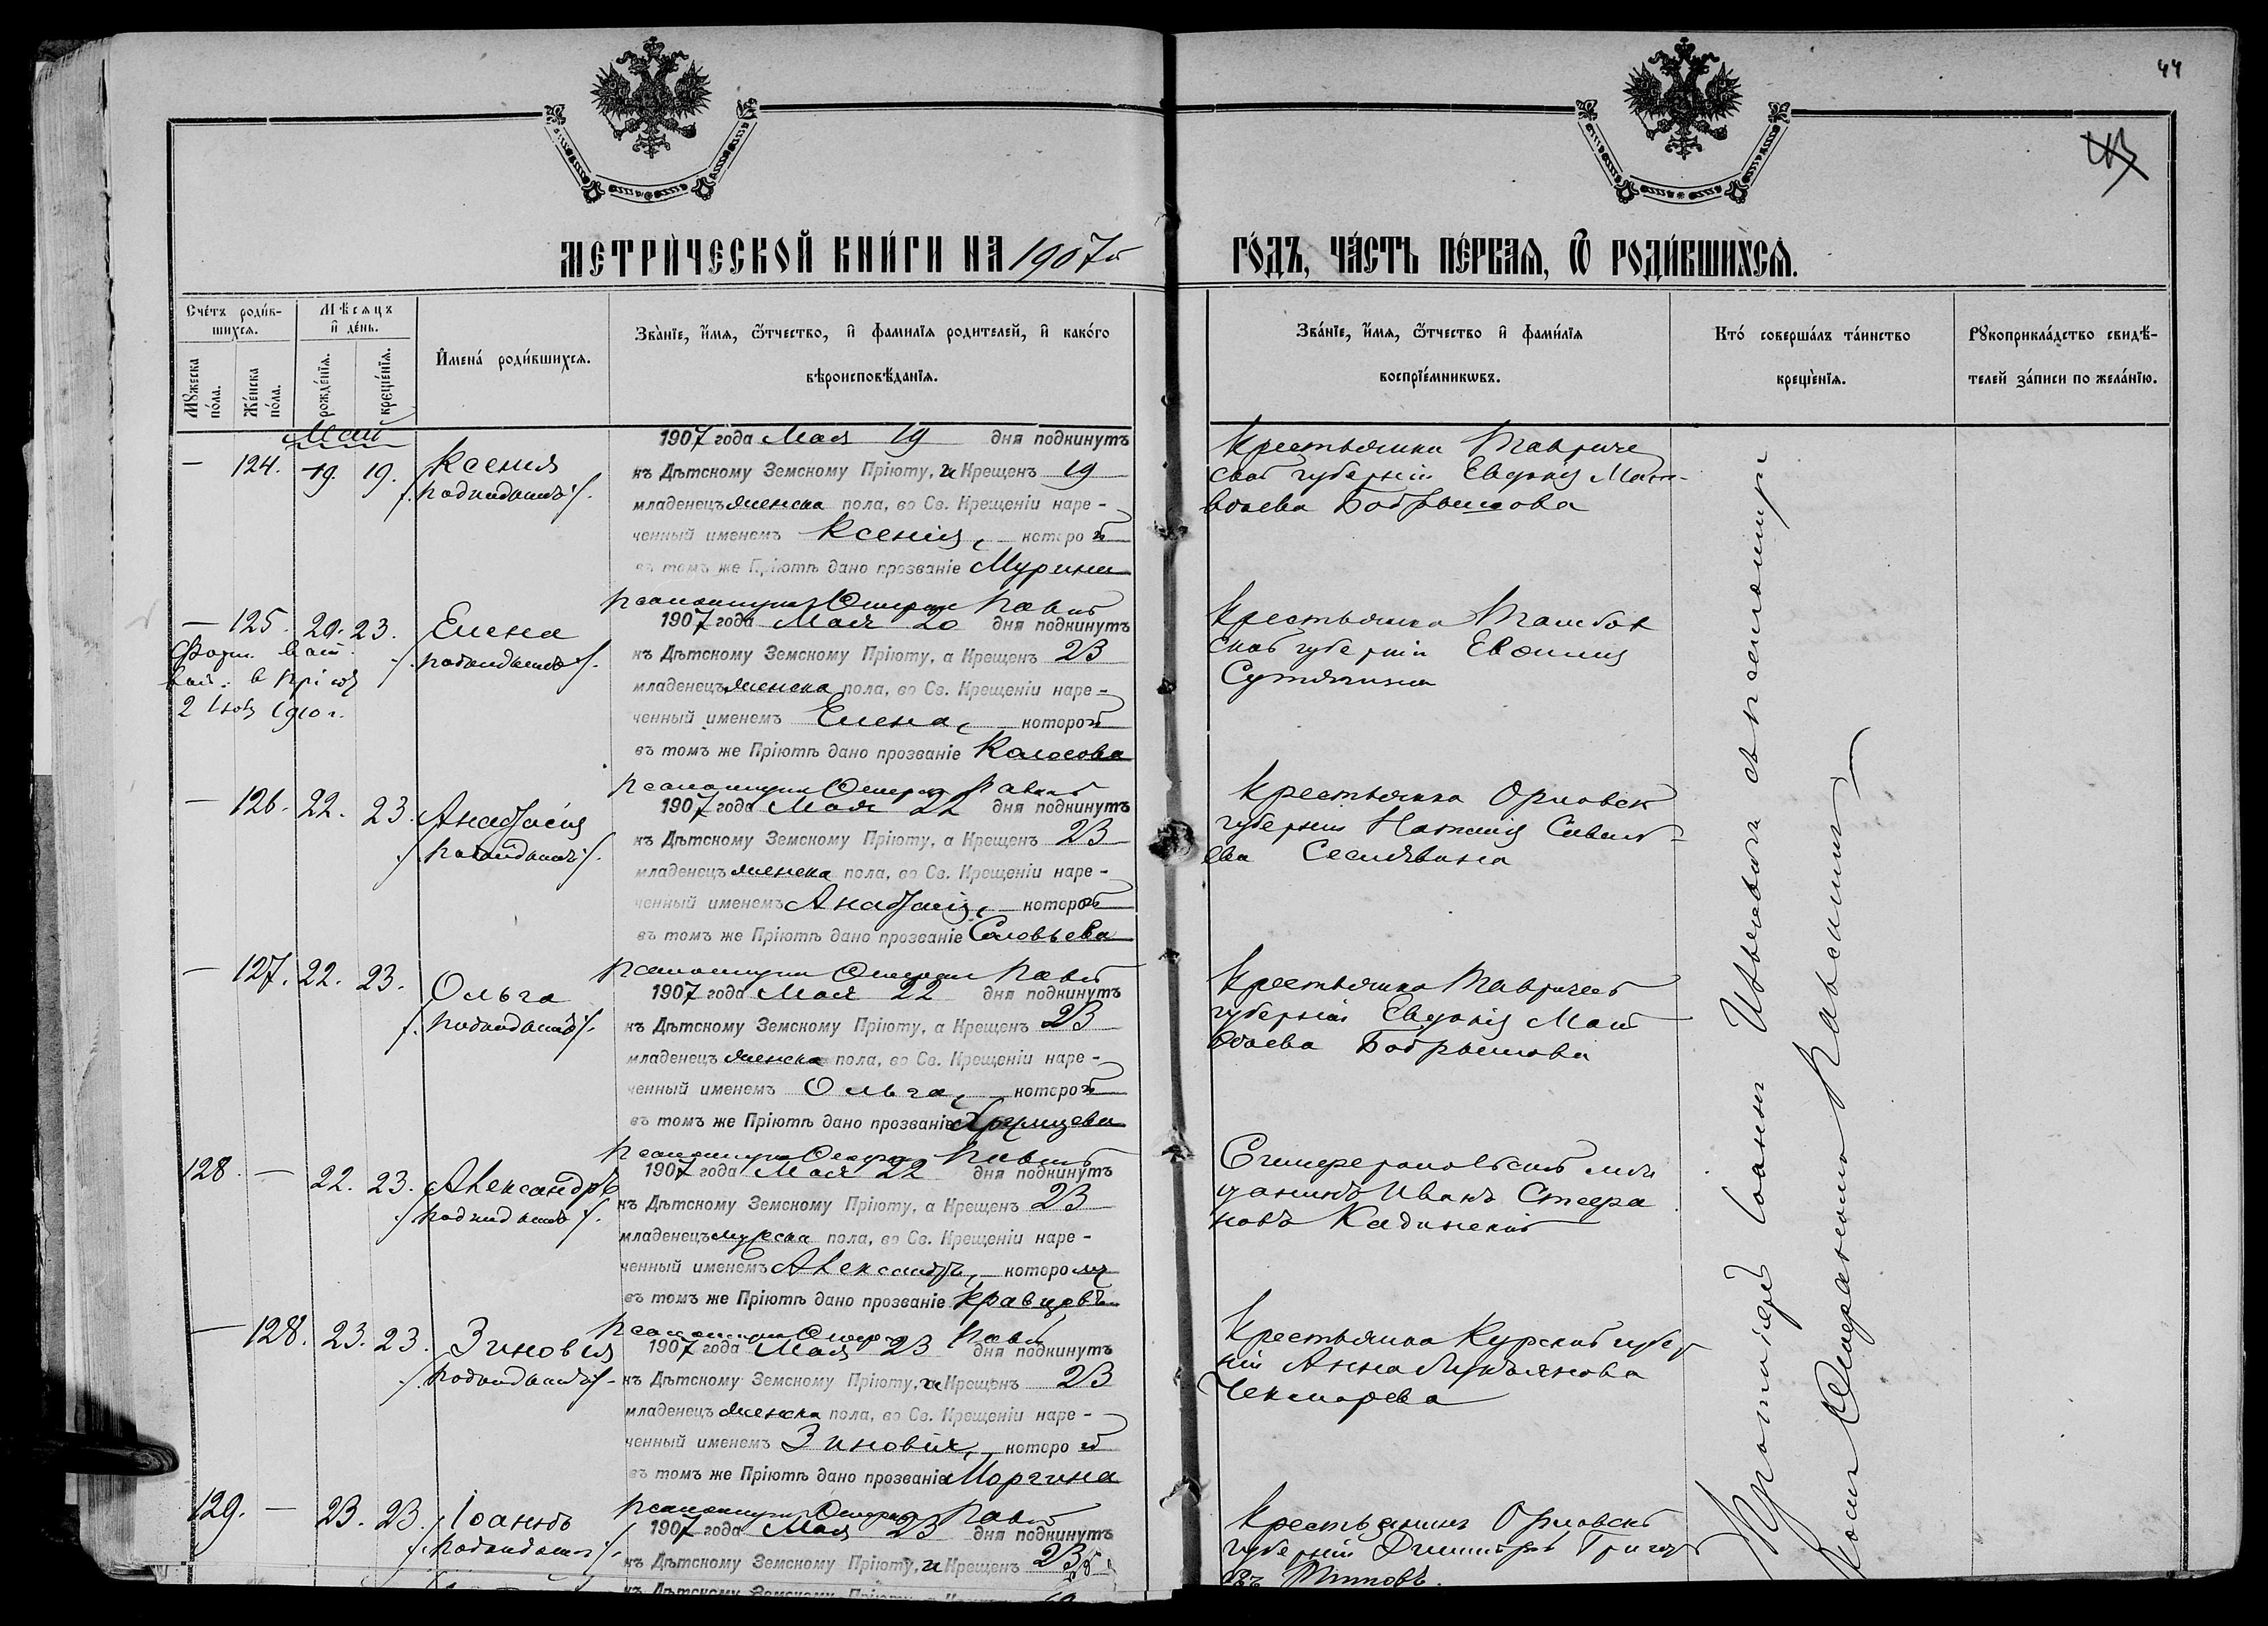 44
МЕТРИЧЕСКОЙ КНИГИ НА 1907й
ГОДЪ, ЧАСТЬ ПЕРВАЯ, Ѿ РОДИВШИХСЯ.
Счетъ родив-
шихся.
Мꙋжеска
пола.
Женска
пола.
Мѣсяцъ
и день.
рожденїя.
крещенїя.
Имена родившихся.
Званїе, имя, ѿтчество, и фамилїя родителей, и какого
вѣроисповѣданїя.
Званїе, имя, ѿтчество и фамилїя
воспрїемникѡвъ.
Кто совершалъ таинство
крещенїя.
Рꙋкоприкладство свидѣ-
телей записи по желанїю.
Май
— 124. 19. 19.
Ксения
/. подкидышъ /.
1907 года Мая 19 дня подкинутъ
къ Дѣтскому Земскому Пріюту, и Крещенъ 19
младенецъ женска пола, во Св. Крещеніи наре-
ченный именемъ Ксенія, которой
въ томъ же Пріютѣ дано прозваніе Мурина
Крестьянка Тавриче
ской губерніи Евдокія Мат-
вѣева Бобрышова
— 125. 20. 23.
2 1910 г.
Елена
/. подкидышъ /.
Псаломщикъ
1907 года Мая 20 дня подкинутъ
къ Дѣтскому Земскому Пріюту, а Крещенъ 23
младенецъ женска пола, во Св. Крещеніи наре-
ченный именемъ Елена, которой
въ томъ же Пріютѣ дано прозваніе Колосова
Крестьянка Тамбов
ской губерніи Евфимія
— 126. 22. 23.
Анастасія
/. подкидышъ /.
Псаломщикъ
1907 года Мая 22 дня подкинутъ
къ Дѣтскому Земскому Пріюту, а Крещенъ 23
младенецъ женска пола, во Св. Крещеніи наре-
ченный именемъ Анастасія, которой
въ томъ же Пріютѣ дано прозваніе Соловьева
Крестьянка Орловск
губерніи Наталія Савель-
ева
— 127. 22. 23.
Ольга
/. подкидышъ /.
Псаломщикъ
1907 года Мая 22 дня подкинутъ
къ Дѣтскому Земскому Пріюту, а Крещенъ 23
младенецъ женска пола, во Св. Крещеніи наре-
ченный именемъ Ольга, которой
въ томъ же Пріютѣ дано прозваніе
Крестьянка Тавричес
губерніи Евдокія Мат
вѣева Бобрышова
128. — 22. 23.
Александръ
/. подкидышъ /.
Псаломщикъ
1907 года Мая 22 дня подкинутъ
къ Дѣтскому Земскому Пріюту, а Крещенъ 23
младенецъ мужеска пола, во Св. Крещеніи наре-
ченный именемъ Александръ, которому
въ томъ же Пріютѣ дано прозваніе Кравцовъ
Симферопольскій мѣ
щанинъ Иванъ Стефа
новъ Кадинскій
— 128. 23. 23.
Зиновія
/. подкидышъ /.
Псаломщикъ
1907 года Мая 23 дня подкинутъ
къ Дѣтскому Земскому Пріюту, и Крещенъ 23
младенецъ женска пола, во Св. Крещеніи наре-
ченный именемъ Зиновія, которой
въ томъ же Пріютѣ дано прозваніе Моргина
Крестьянка Курской губер
ніи Анна Лукьянова
Чекмарева
129. — 23. 23.
Іоаннъ
/. подкидышъ /.
Псаломщикъ
1907 года Мая 23 дня подкинутъ
къ Дѣтскому Земскому Пріюту, и Крещенъ 23
Крестьянинъ Орловск
губерніи Димитрій Григор
Титовъ.
къ Дѣтскому Земскому Пріюту, а
Протоіерей Іоаннъ съ псаломщи
комъ